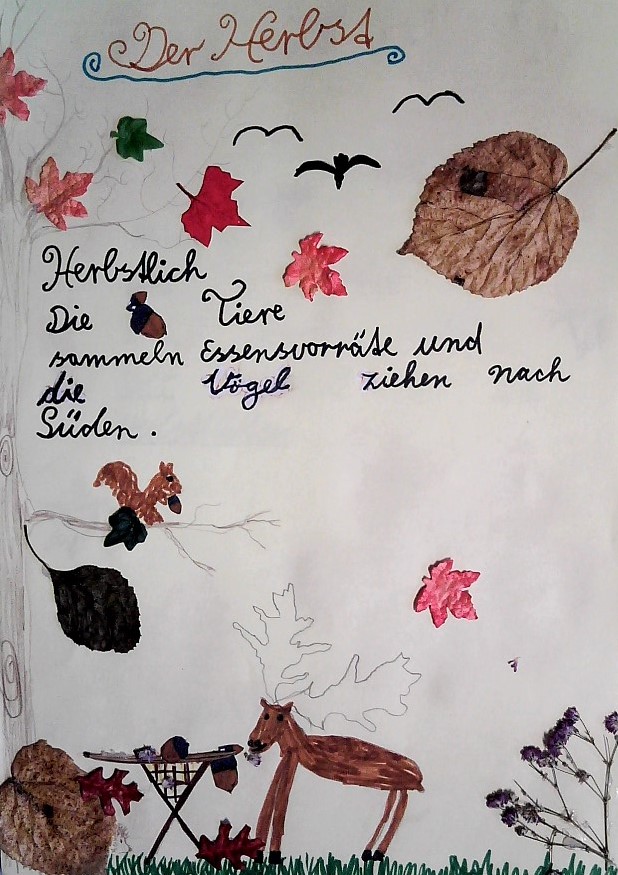 Der Herbst
Herbstlich
Die Tiere
sammeln Essensvorräte und
die Vögel ziehen nach
Süden.